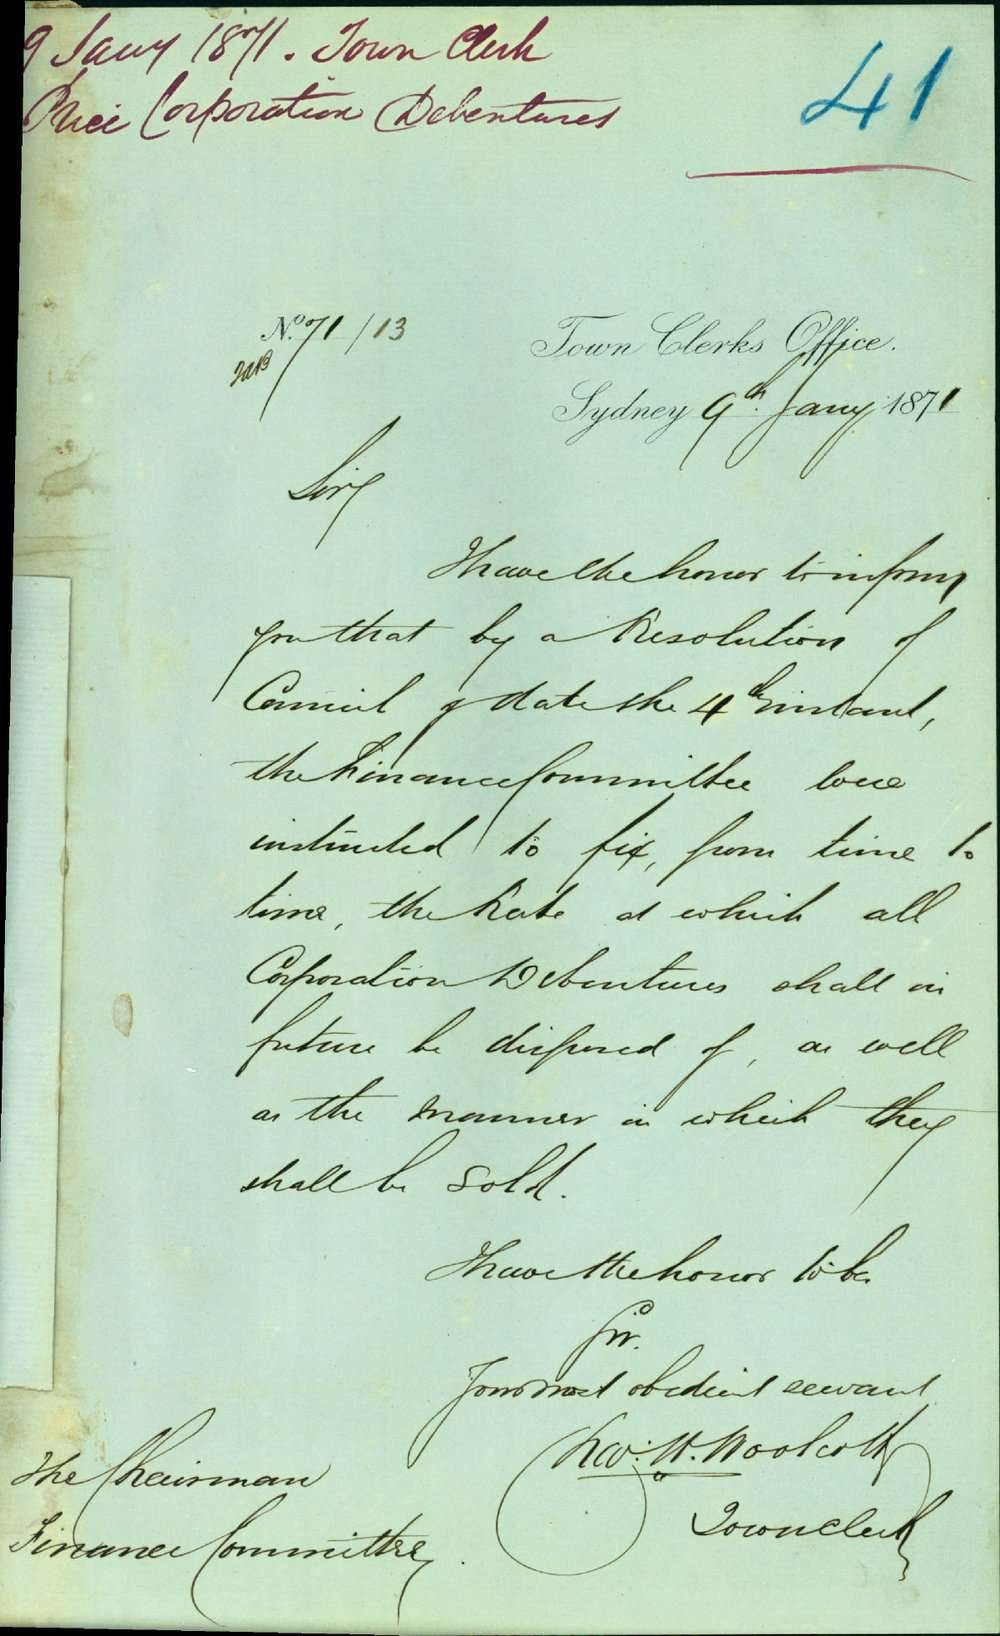 9 Jany 1871. Town Clerk
Price Corporation Debentures
41
No. 71/13
Town Clerks Office.
Sydney 9th. Jany 1871
Sir,
I have the honor to inform
you that by a Resolution of
Council of date the 4th instant,
the Finance Committee were
instructed to fix, from time to
time, the Rate at which all
Corporation Debentures shall in
future be disposed of, as well
as the manner in which they
shall be sold.
I have the honor to be
Sir.
Your most obedient servant
Chas. H. Woolcott
Town Clerk
The Chairman
Finance Committee.